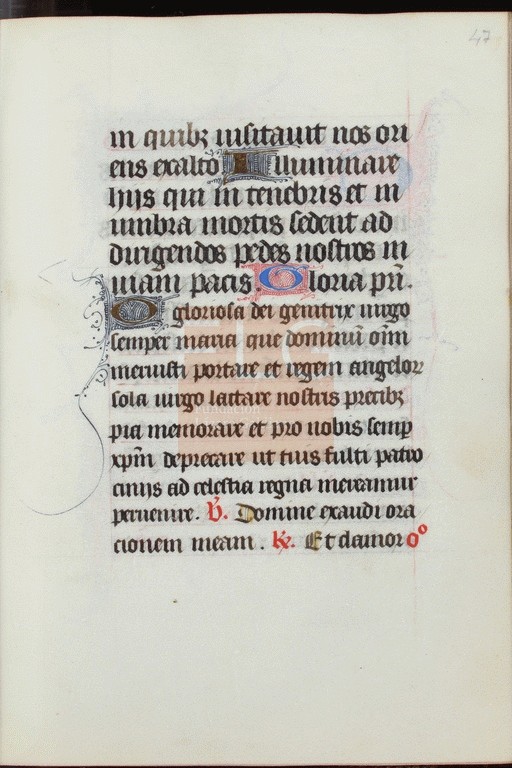 47
in quibȝ uisitauit nos ori
ens exalto Illuminare
hijs qui in tenebris et in
umbra mortis sedent ad
dirigendos pedes nostros in
uiam pacis. Gloria pr̄i.
O gloriosa dei genitrix uirgo
semper maria que dominū om̄i
meruisti portare et regem angeloꝝ
sola uirgo lactare nostris precibȝ
pia memorare et pro nobis semꝑ
xpm̄ deprecare ut tuis fulti patro
cinijs ad celestia regna mereamur
peruenire. ℣. Domine exaudi ora
cionem meam. ℟. Et clamor oᵒ